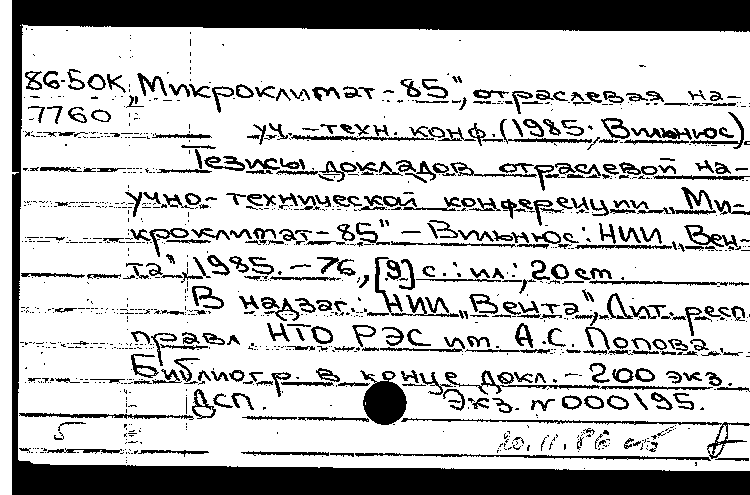 86-50К „Микроклимат-85", отраслевая на-
7760
уч.-техн. конф. (1985; Вильнюс)
Тезисы докладов отраслевой на-
учно-технической конференции „Ми-
кроклимат-85" – Вильнюс: НИИ „Вен-
та", 1985. – 76, [9] с.: ил.; 20 cm.
В надзаг.: НИИ „Вента", Лит. респ.
правл. НТО РЭС им. А.С. Попова.
Библиогр. в конце докл. – 200 экз.
ДСП. Экз. N 000195.
5 20.11.86